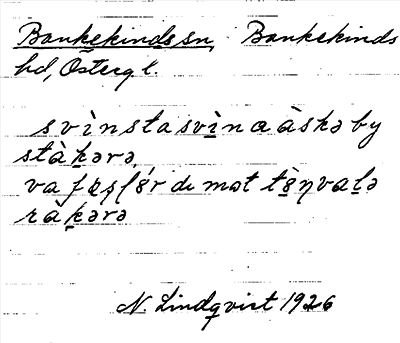 Bankekinds sn, Bankekinds
hd, Östergtl.
svìnstasvìnaàskə by
stàkərə,
va fœṣḷör du mət töŋvalə
ràkərə
N. Lindqvist 1926